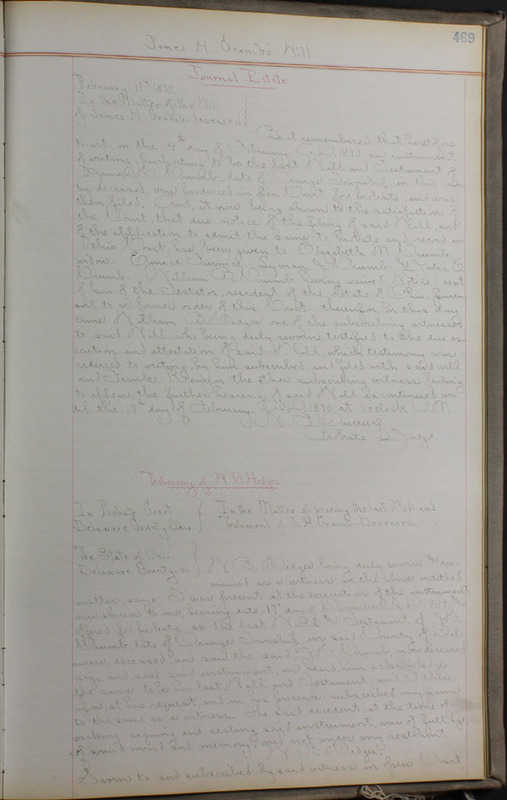 469
James H. Crumb's Will
Journal Entry
February 11th 1890.
In the Matter of the Will
of James H. Crumb deceased
Be it remembered that heretofore
to wit, on the 4th day of February A.D. 1890 an instrument
of writing, purporting to be the last Will and Testament of
James H. Crumb late of Orange Township in this
ty deceased, was produced in open Court for probate and was
then filed. And, it now being shown to the satisfaction of
the Court that due notice of the filing of said Will, and
of the application to admit the same to probate and record in
this Court, has been given to Elizabeth M. Crumb
widow. Crumb
Crumb William B. Crumb having waived notice next
of kin of the Testator, resident of the State of Ohio, pursu
ant to a former order of this Court. therefore, on this day
came William B. Hedges one of the subscribing witnesses
to said Will who being duly sworn testified to the due ex
ecution and attestation of said Will, which testimony was
reduced to writing by him subscribed, and filed with said will
and Frank the other subscribing witness failing
to appear the further hearing of said Will is continued un
til the 19th day of February A.D. 1890 at 1 o'clock P.M.
Probate Judge
Testimony of W. B. Hedges
In Probate Court
Delaware County, Ohio
In the Matter of proving the last Will and
Testament of J. H. Crumb Deceased
The State of Ohio
Delaware County, ss
W. B. Hedges being duly sworn and exa
mined as a witness in the above entitled
matter, says: I was present at the execution of the instrument
now shown to me, bearing date 17th day of December A.D. 1889, and
offered for probate as the last Will and Testament of J. H.
Crumb late of Orange Township, in said County of Del
aware, deceased, and saw the said J. H. Crumb, now deceased
sign and seal said instrument, and heard him acknowledge
the same to be his last Will and Testament; and I there
upon, at his request and in his presence, subscribed my name
to the same as a witness. The said decedent, at the time of
making, signing and sealing said instrument, was of full age,
of sound mind and memory, and not under any restraint.
W. B. Hedges.
Sworn to and subscribed by said witness in open Court,